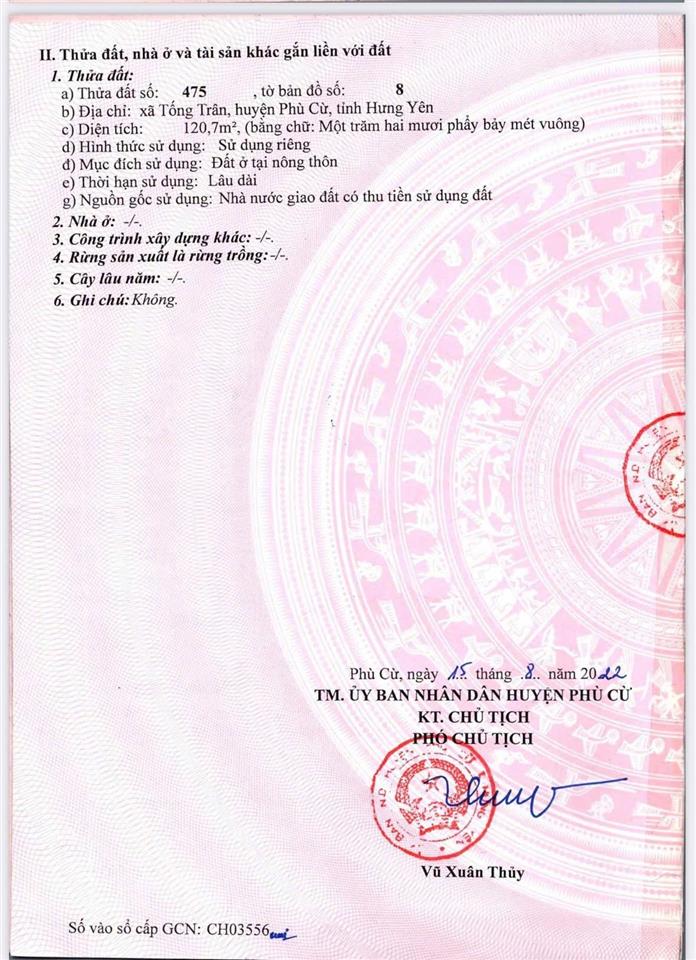 II. Thửa đất, nhà ở và tài sản khác gắn liền với đất
1. Thửa đất:
a) Thửa đất số: 475 , tờ bản đồ số: 8
b) Địa chỉ: xã Tống Trân, huyện Phù Cừ, tỉnh Hưng Yên
c) Diện tích: 120,7m², (bằng chữ: Một trăm hai mươi phẩy bảy mét vuông)
d) Hình thức sử dụng: Sử dụng riêng
đ) Mục đích sử dụng: Đất ở tại nông thôn
e) Thời hạn sử dụng: Lâu dài
g) Nguồn gốc sử dụng: Nhà nước giao đất có thu tiền sử dụng đất
2. Nhà ở: -/-.
3. Công trình xây dựng khác: -/-.
4. Rừng sản xuất là rừng trồng: -/-.
5. Cây lâu năm: -/-.
6. Ghi chú: Không.
Phù Cừ, ngày 15 tháng 8 năm 2022
TM. ỦY BAN NHÂN DÂN HUYỆN PHÙ CỪ
KT. CHỦ TỊCH
PHÓ CHỦ TỊCH
Vũ Xuân Thủy
Số vào sổ cấp GCN: CH03556